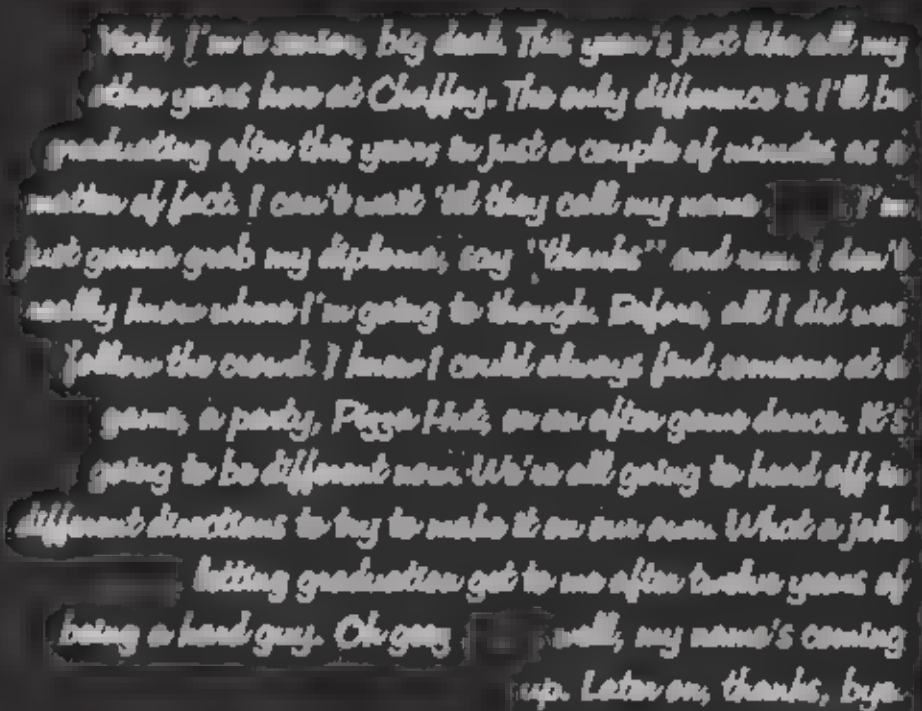 Yeah, I'm a senior, big deal. This year's just like all my
other years here at Chaffey. The only difference is I'll be
graduating after this year, in just a couple of minutes as a
matter of fact. I can't wait 'til they call my name I'm
just gonna grab my diploma, say "thanks" and run. I don't
really know where I'm going to though. Before, all I did was
follow the crowd. I knew I could always find someone at a
game, a party, Pizza Hut, or an after game dance. It's
going to be different now. We're all going to head off in
different directions to try to make it on our own. What a joke
letting graduation get to me after twelve years of
being a hard guy. Oh gag well, my name's coming
up. Later on, thanks, bye.